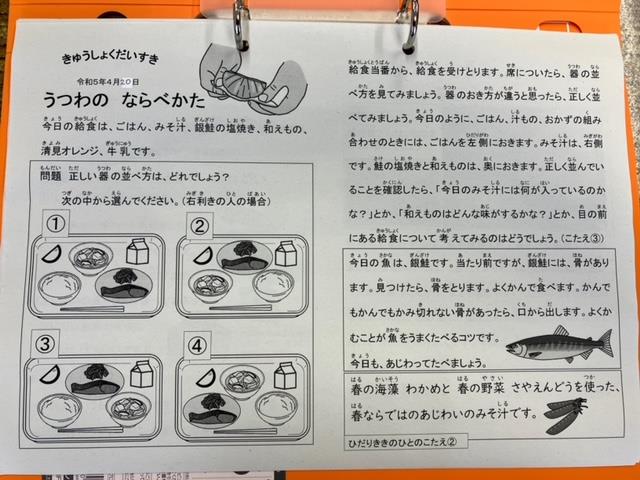 きゅうしょくだいすき
令和5年4月20日
うつわの ならべかた
今日の給食は、ごはん、みそ汁、銀鮭の塩焼き、和えもの、
清見オレンジ、牛乳です。
問題 正しい器の並べ方は、どれでしょう?
次の中から選んでください。(右利きの人の場合)
①
②
③
④
給食当番から、給食を受けとります。席についたら、器の並
べ方を見てみましょう。器のおき方が違うと思ったら、正しく並
べてみましょう。今日のように、ごはん、汁もの、おかずの組み
合わせのときには、ごはんを左側におきます。みそ汁は、右側
です。鮭の塩焼きと和えものは、奥におきます。正しく並んでい
ることを確認したら、「今日のみそ汁には何が入っているのか
な?」とか、「和えものはどんな味がするかな?」とか、目の前
にある給食について考えてみるのはどうでしょう。(こたえ③)
今日の魚は、銀鮭です。当たり前ですが、銀鮭には、骨があり
ます。見つけたら、骨をとります。よくかんで食べます。かんで
もかんでもかみ切れない骨があったら、口から出します。よくか
むことが魚をうまくたべるコツです。
今日も、あじわってたべましょう。
春の海藻 わかめと 春の野菜 さやえんどうを使った、
春ならではのあじわいのみそ汁です。
ひだりききのひとのこたえ②